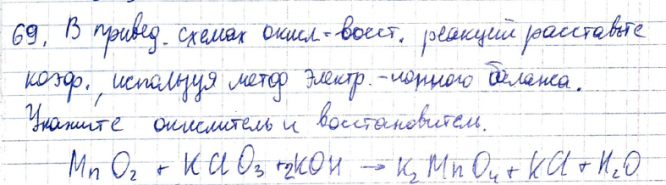 69. В привед. схемах окисл-восст. реакций расставьте
коэф., используя метод электр.-ионного баланса.
Укажите окислитель и восстановитель.
MnO₂ + KClO₃ + 2KOH → K₂MnO₄ + KCl + H₂O